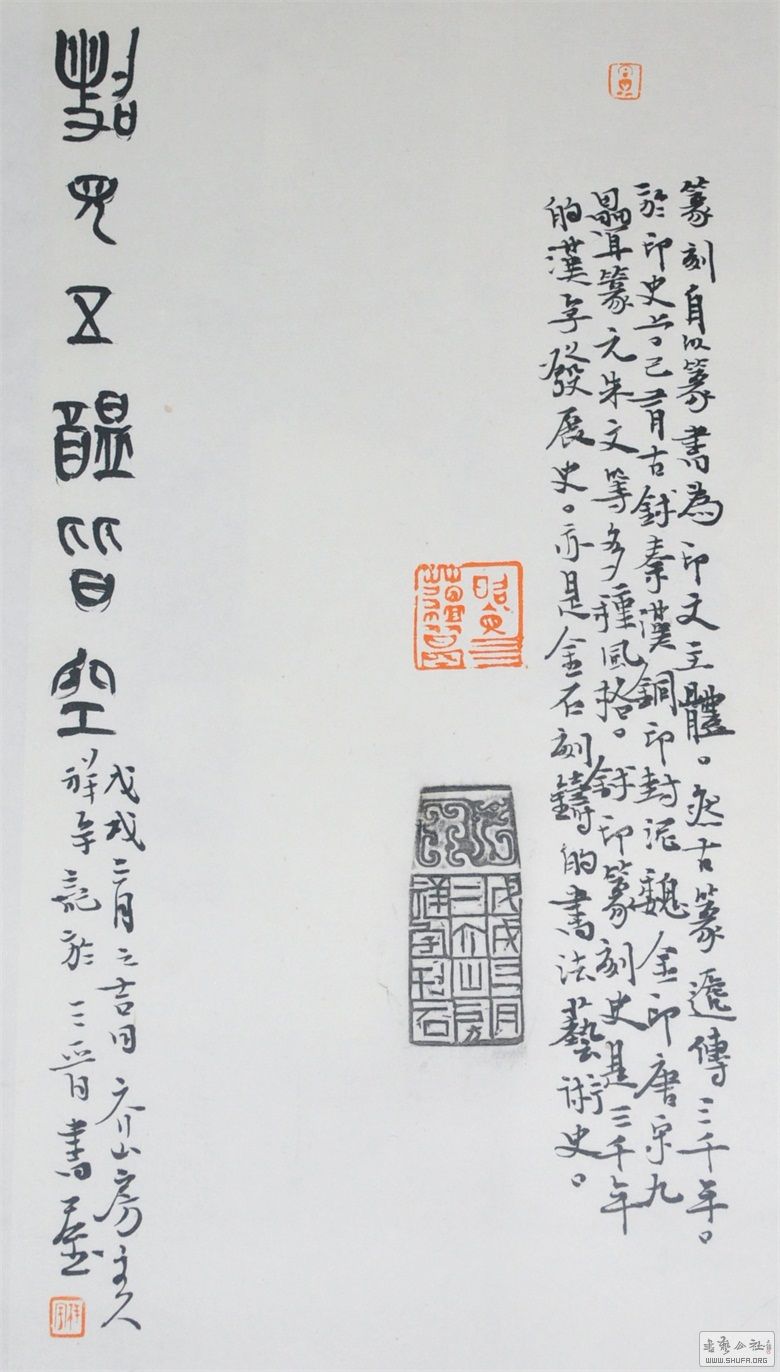 篆刻自以篆書為印文主體。然古篆遞傳三千年。
於印史上。已有古鉨秦漢銅印封泥魏金印唐宋九
疊篆元朱文等多種風格。鉨印篆刻史是三千年
的漢字發展史。亦是金石刻鑄的書法藝術史。
戊戌三月
介山房
祥字刊石
照見五蘊皆空
戊戌三月之吉日介山房主人
祥字記於三晉書屋
祥字
WWW.SHUFA.ORG